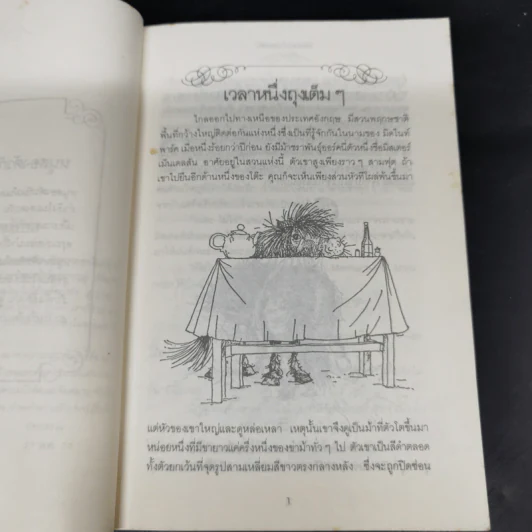 เวลาหนึ่งถุงเต็ม ๆ
ไกลออกไปทางเหนือของประเทศอังกฤษ มีสวนพฤกษชาติ
พื้นที่กว้างใหญ่ติดต่อกันแห่งหนึ่งซึ่งเป็นที่รู้จักกันในนามของ มิดไนท์
พาร์ค เมื่อหนึ่งร้อยกว่าปีก่อน ยังมีม้าชราพันธุ์ออร์คนีตัวหนึ่งชื่อมิสเตอร์
เม็นเดลสัน อาศัยอยู่ในสวนแห่งนี้ ตัวเขาสูงเพียงราว ๆ สามฟุต ถ้า
เขาไปยืนอีกด้านหนึ่งของโต๊ะ คุณก็จะเห็นเพียงส่วนหัวที่โผล่พ้นขึ้นมา
แต่หัวของเขาใหญ่และดูหล่อเหลา เหตุนั้นเขาจึงดูเป็นม้าที่ตัวโตขึ้นมา
หน่อยหนึ่งที่มีขายาวแค่ครึ่งหนึ่งของขาม้าทั่ว ๆ ไป ตัวเขาเป็นสีดำตลอด
ทั้งตัวยกเว้นที่จุดรูปสามเหลี่ยมสีขาวตรงกลางหลัง ซึ่งจะถูกปิดซ่อน